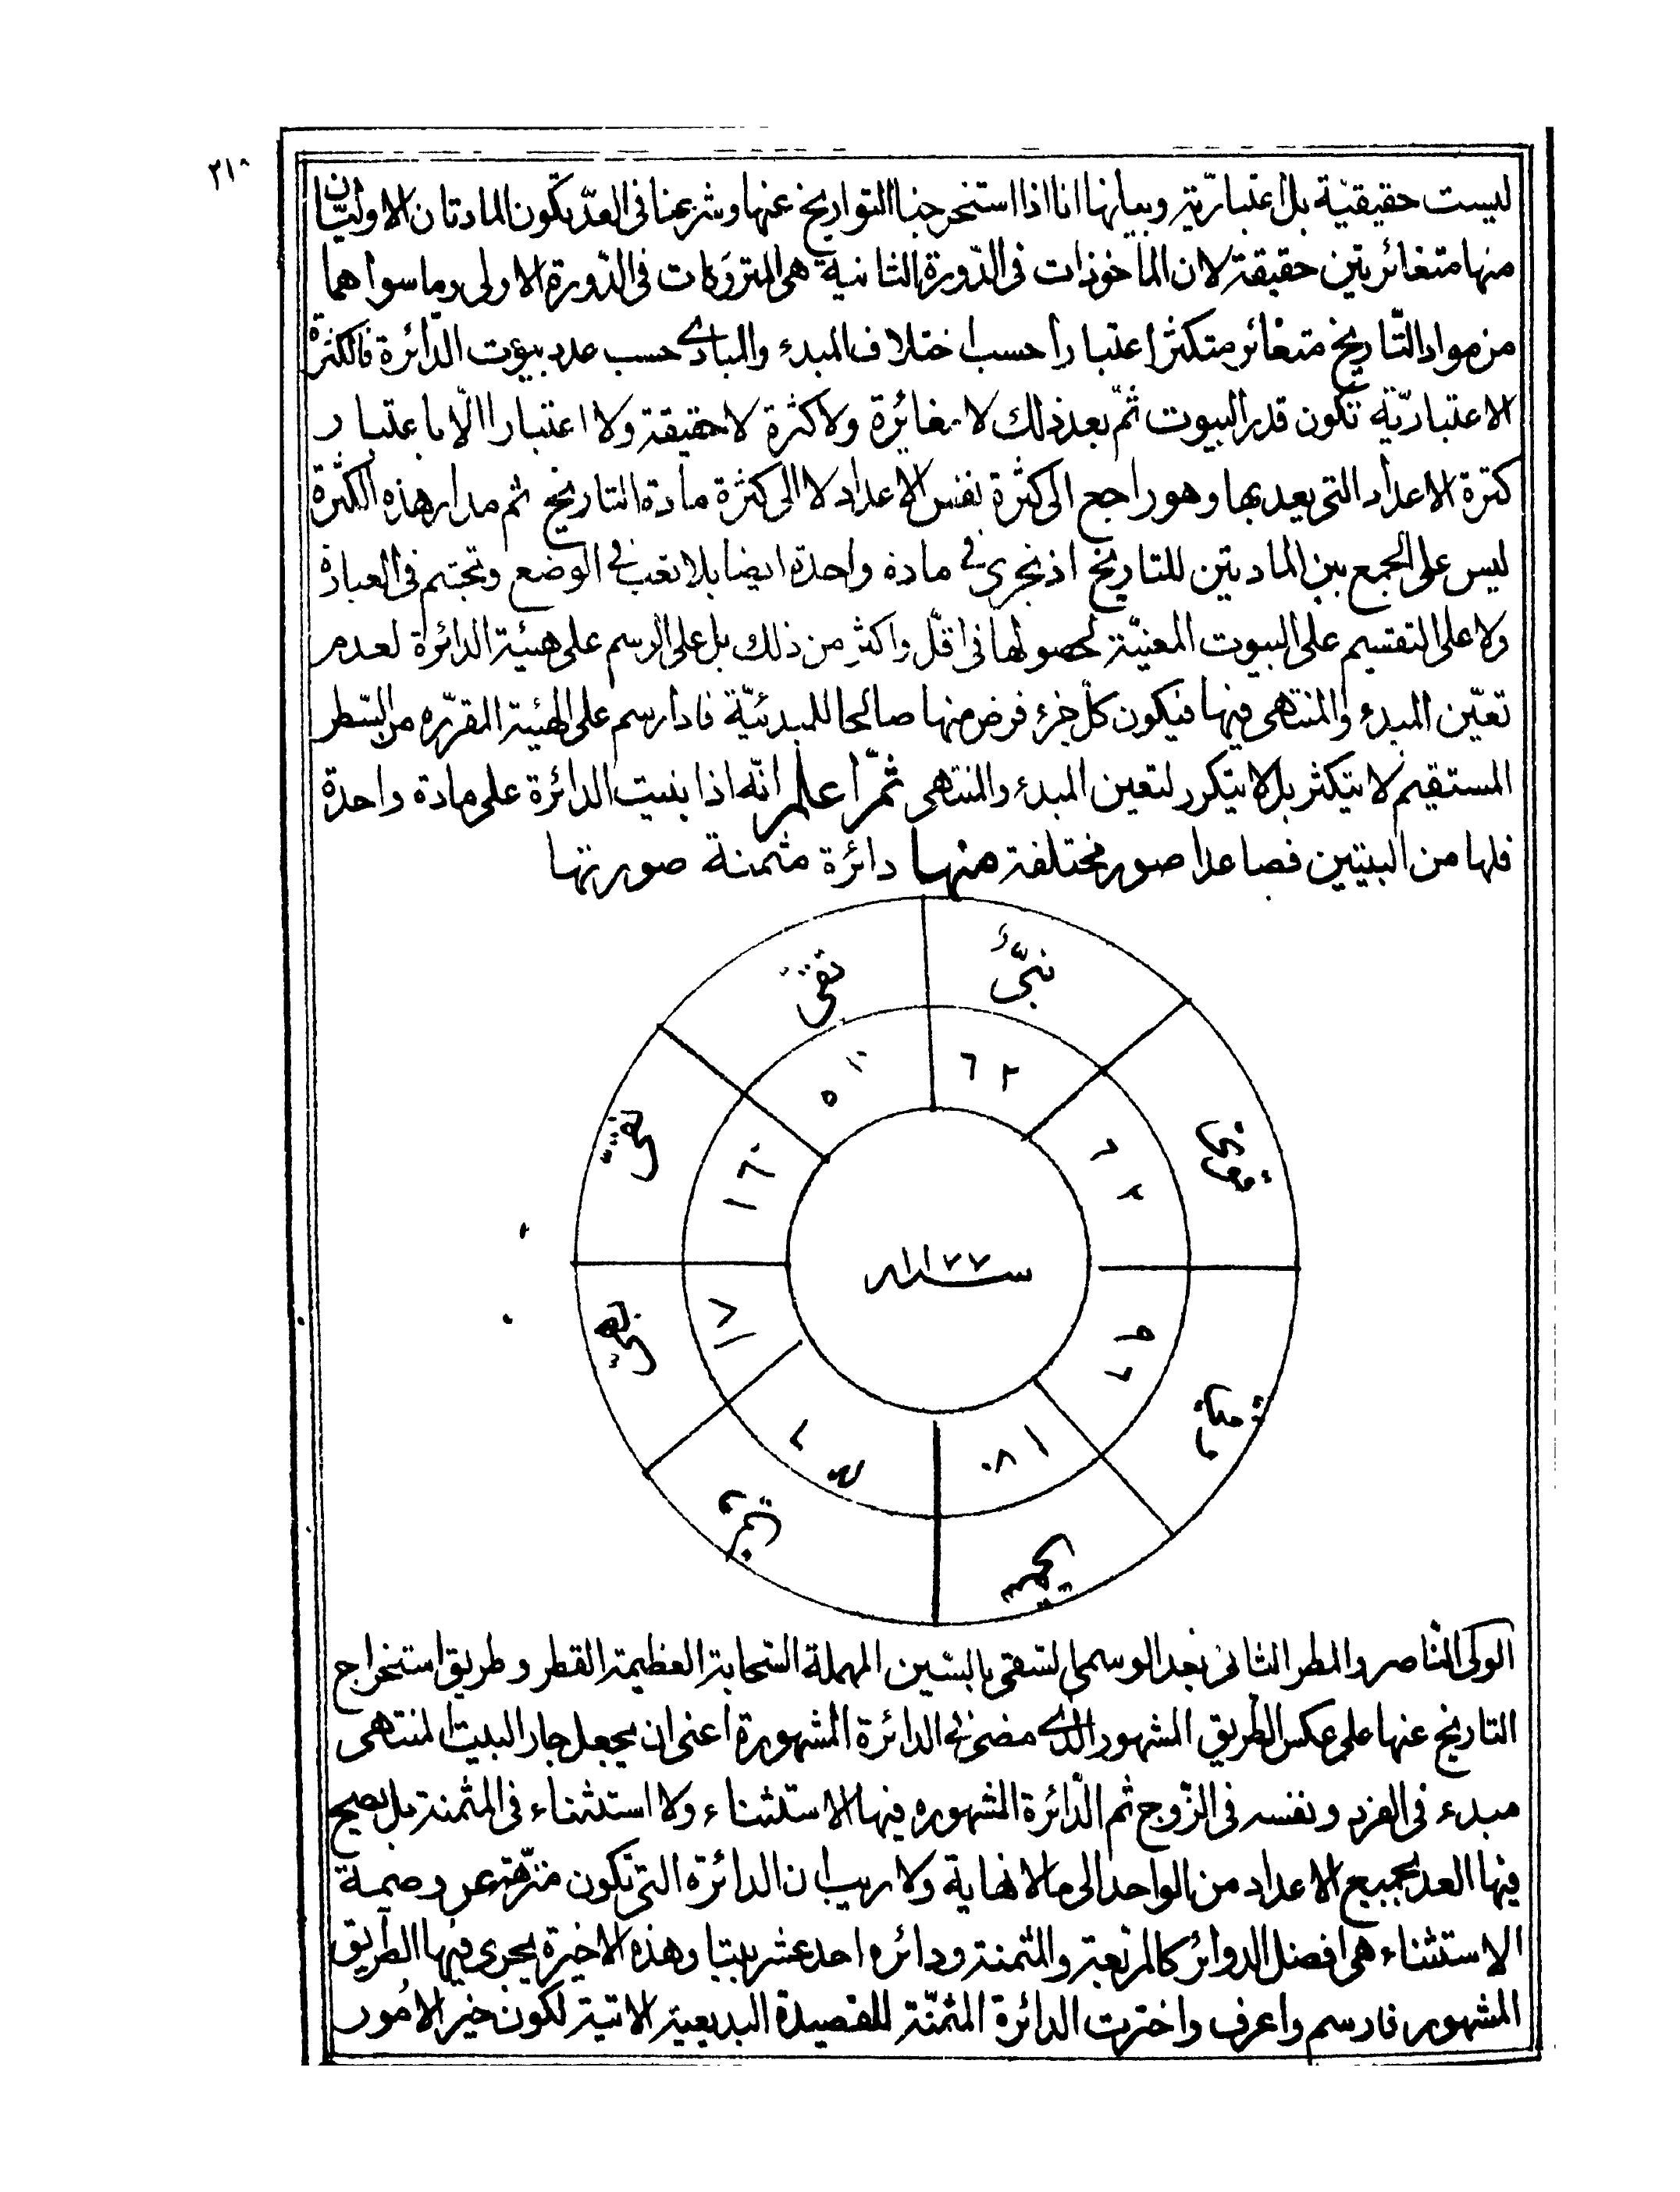 ٢١٨
ليست حقيقيّة بل اعتباريّة وبيانها انا اذا استخرجنا التواريخ عنها وشرعنا فى العدّ يكون المادتان الاوليّان
منها متغائريتين حقيقة لان الماخوذات فى الدّورة الثانية هى المتروكات فى الدّورة الاولى وما سواهما
من مواد التّاريخ متغائر متكثر اعتبارا حسب اختلاف المبدء والمبادى حسب عدد بيوت الدّائرة فالكثرة
الاعتباريّة تكون قدر البيوت ثمّ بعد ذلك لا مغائرة ولا كثرة لا حقيقة ولا اعتبارا الّا باعتبار
كثرة الاعداد التى يعد بها وهو راجع الى كثرة نفس الاعداد لا الى كثرة مادة التاريخ ثم مدار هذه الكثرة
ليس على الجمع بين المادتين للتاريخ اذ نجرى فى مادة واحدة ايضا بلا تعب فى الوضع وتجشم فى العبارة
ولا على التقسيم على البيوت المعنيّة لحصولها فى اقلّ واكثر من ذلك بل على الرسم على هيئة الدائرة لعدم
تعيّن المبدء والمنتهى فيها فيكون كلّ جزء فرض منها صالحا للمبدئيّة فاذا رسم على الهيئة المقرّره من السّطر
المستقيم لا يتكثر بل لا يتكرر لتعين المبدء والمنتهى ثمّ اعلم انّه اذا بنيت الدائرة على مادة واحدة
فلها من البيتين فصاعدا صور مختلفة منها دائرة مثمنة صورتها
نجىّ
٦٢
تقى
٥١٠
١٦٠
١٨٠
سنه ١١٧٧
الولى النّاصر والمطر الثانى بعد الوسمى لسقى بالسّين المهملة السّحابة العظيمة القطر وطريق استخراج
التاريخ عنها على عكس الطريق المشهور الذى مضى فى الدائرة المشهورة اعنى ان يجعل جار البيت المنتهى
مبدء فى الفرد ونفسه فى الزّوج ثم الدّائرة المشهوره فيها الاستثناء ولا استثناء فى المثمنة بل يصح
فيها العد بجميع الاعداد من الواحد الى ما لا نهاية ولا ريب ان الدائرة التى تكون منزّهة عن وصمة
الاستثناء هى افضل الدوائر كالمربعة والمثمنة ودائره احد عشر بيتا وهذه الاخيرة يجرى فيها الطّريق
المشهور فارسم واعرف واخترت الدائرة المثمنّة للقصيدة البديعية الاتية لكون خير الامور